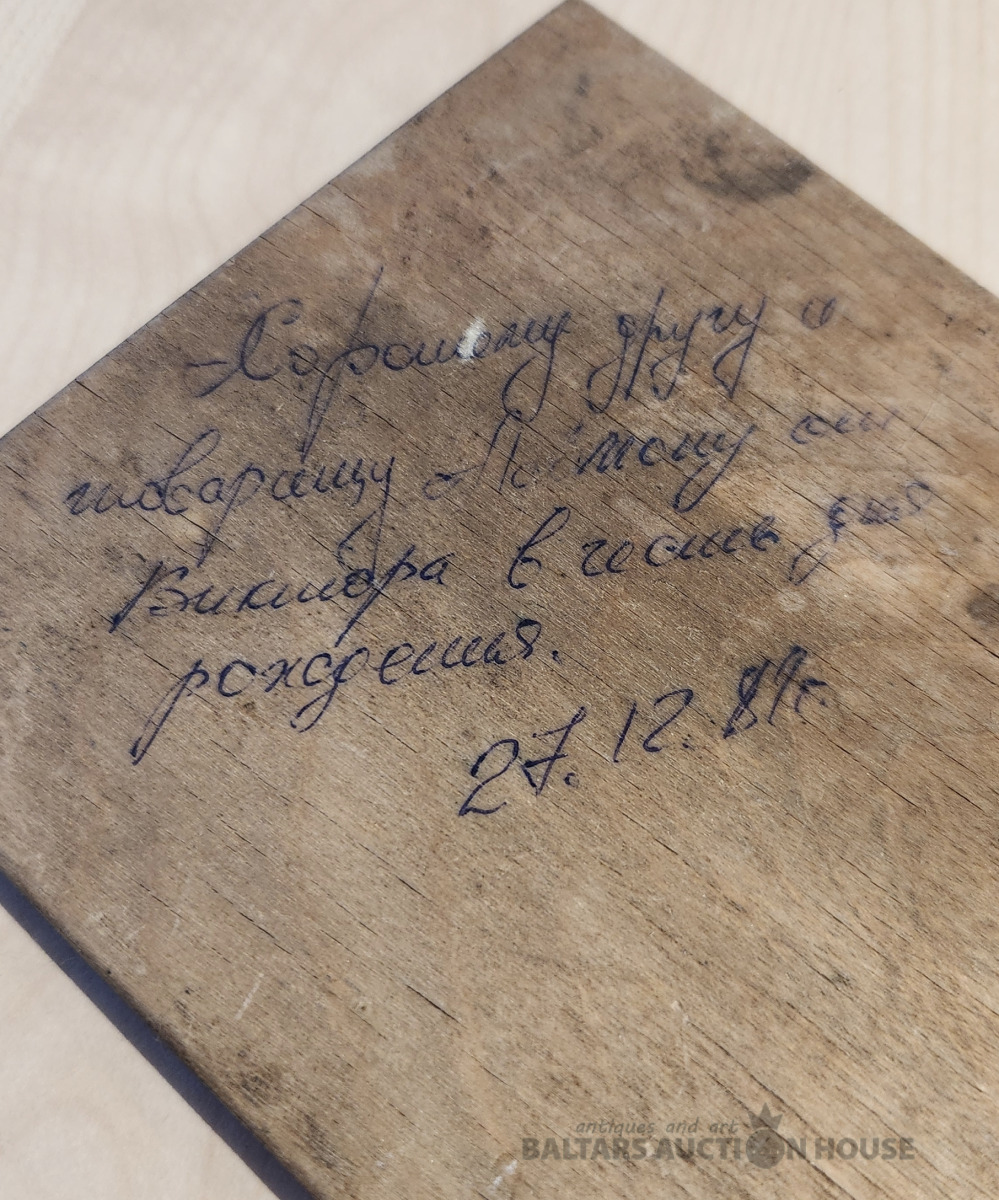 Хорошему другу и
товарищу Аймону от
Виктора в честь дня
рождения.
27.12.81г.
antiques and art
BALTARS AUCTION HOUSE